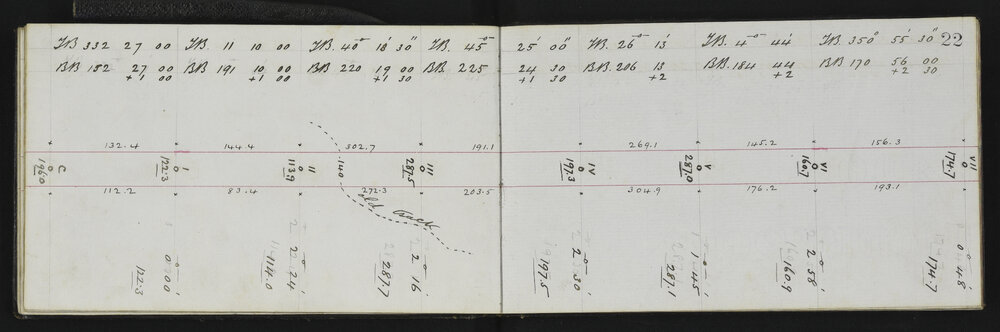 FB 332 27 00 FB. 11 10 00 FB. 40° 18' 30" FB. 45° 25' 00" FB. 26° 13' FB. 4° 44' FB 350° 55' 30" 22
BB 152 27 00 BB 191 10 00 BB 220 19 00 BB 225 24 30 BB. 206 13 BB. 184 44 BB 170 56 00
+1 00 +1 00 +1 30 +1 30 +2 +2 +2 30
132.4 144.4 302.7 191.1 269.1 145.2 156.3
C 0 196.0
I 0 122.3
II 0 113.9
140
III 0 287.5
IV 0 197.3
V 0 287.0
VI 0 160.7
VII 0 174.7
112.2 83.4 272.3 203.5 304.9 176.2 193.1
old track
0° 00'
122.3
2° 24'
114.0
2° 16'
287.7
2° 30'
197.5
1° 45'
287.1
2° 58'
160.9
0° 48'
174.7